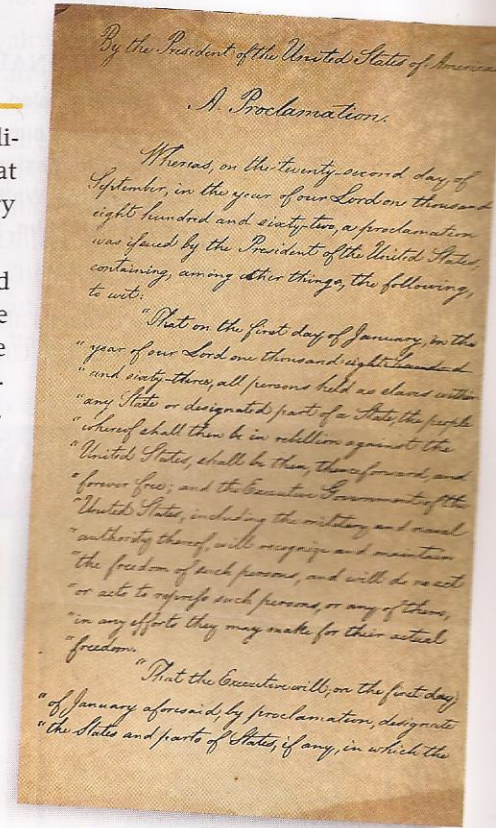 By the President of the United States of America
A Proclamation.
Whereas, on the twenty-second day of
September, in the year of our Lord one thousand
eight hundred and sixty-two, a proclamation
was issued by the President of the United States
containing, among other things, the following,
to wit:
"That on the first day of January, in the
"year of our Lord one thousand eight hundred
"and sixty-three, all persons held as slaves within
"any State or designated part of a State, the people
"whereof shall then be in rebellion against the
"United States, shall be then, thenceforward, and
"forever free; and the Executive Government of the
"United States, including the military and naval
"authority thereof, will recognize and maintain
"the freedom of such persons, and will do no act
"or acts to repress such persons, or any of them,
"in any efforts they may make for their actual
"freedom.
"That the Executive will, on the first day
"of January aforesaid, by proclamation, designate
"the States and parts of States, if any, in which the